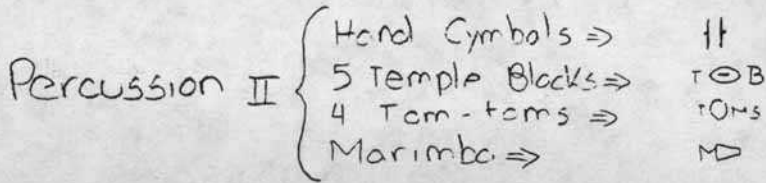 Percussion II
Hand Cymbals ⇒
5 Temple Blocks ⇒ T⊖B
4 Tom-toms ⇒ TOMS
Marimba ⇒ M